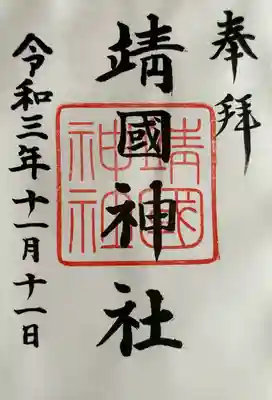 奉拝
靖國神社
靖國神社
令和三年十一月十一日